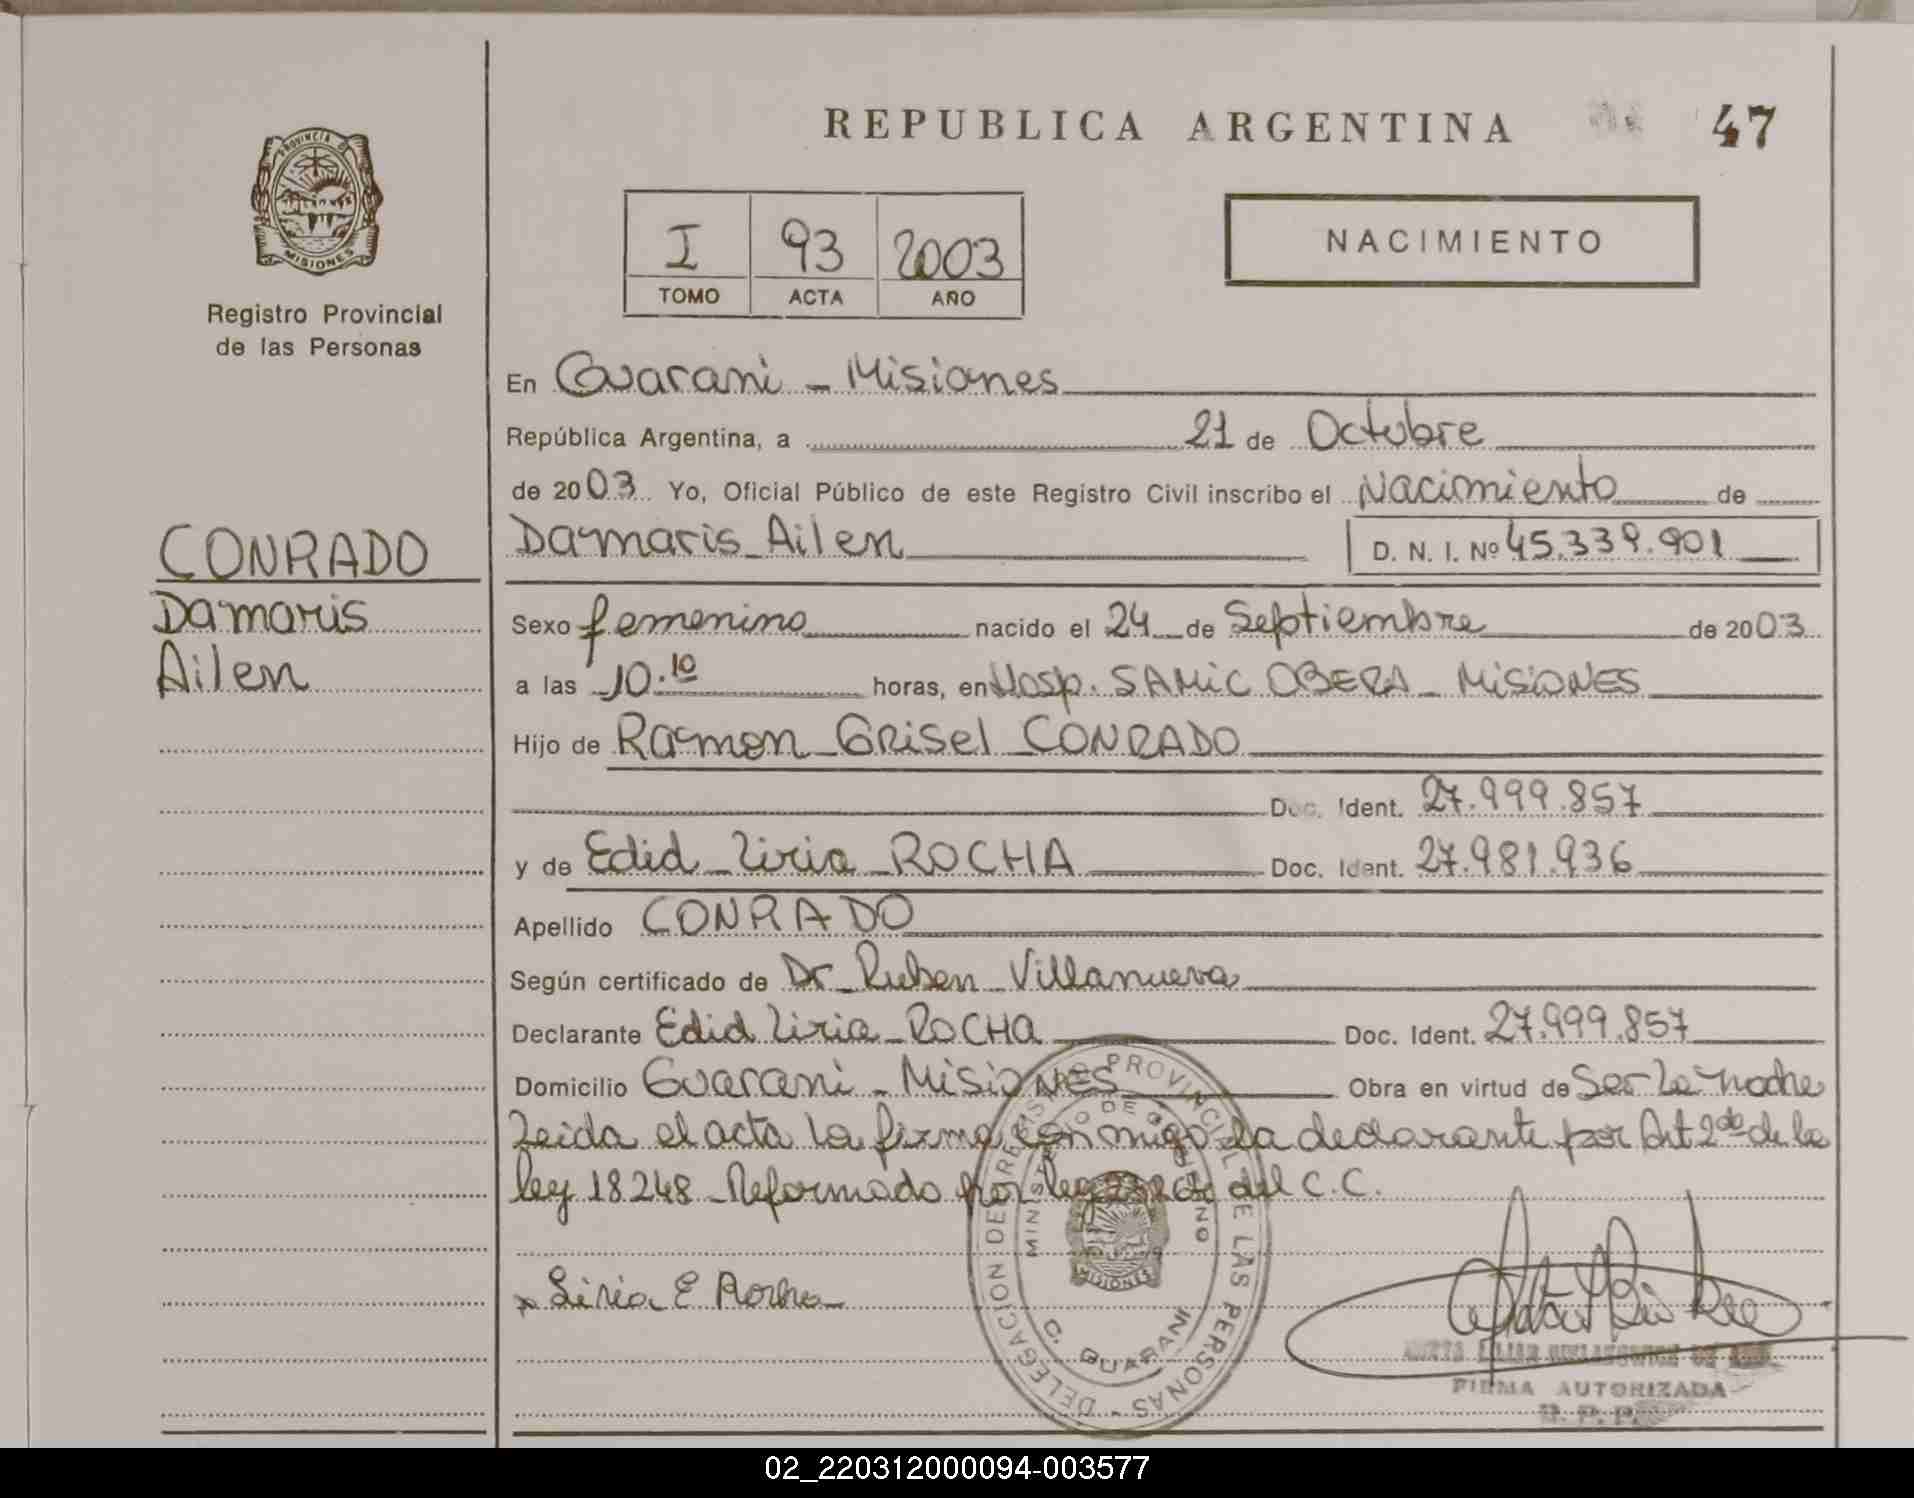 REPUBLICA ARGENTINA 47
PROVINCIA D
MISIONES
Registro Provincial
de las Personas
I 93 2003
TOMO ACTA AÑO
NACIMIENTO
En Guarani - Misiones
República Argentina, a 21 de Octubre
de 2003 Yo, Oficial Público de este Registro Civil inscribo el Nacimiento de
CONRADO
Damaris
Ailen
Damaris Ailen D. N. I. Nº 45.339.901
Sexo femenino nacido el 24 de Septiembre de 2003
a las 10.10 horas, en Hosp. SAMIC OBERA - MISIONES
Hijo de Ramon Grisel CONRADO
Doc. Ident. 27.999.857
y de Edid Liria ROCHA Doc. Ident. 27.981.936
Apellido CONRADO
Según certificado de Dr Ruben Villanueva
Declarante Edid Liria ROCHA Doc. Ident. 27.999.857
Domicilio Guarani - Misiones Obra en virtud de Ser La madre
Leida el acta la firma conmigo la declarante por Art 2do de la
ley 18248 - Reformado por ley del C.C.
Liria E Rocha
DELEGACION DE REGISTRO PROVINCIAL DE LAS PERSONAS
MINISTERIO DE GOBIERNO
MISIONES
C. GUARANI
FIRMA AUTORIZADA
R. P. P.
02_220312000094-003577